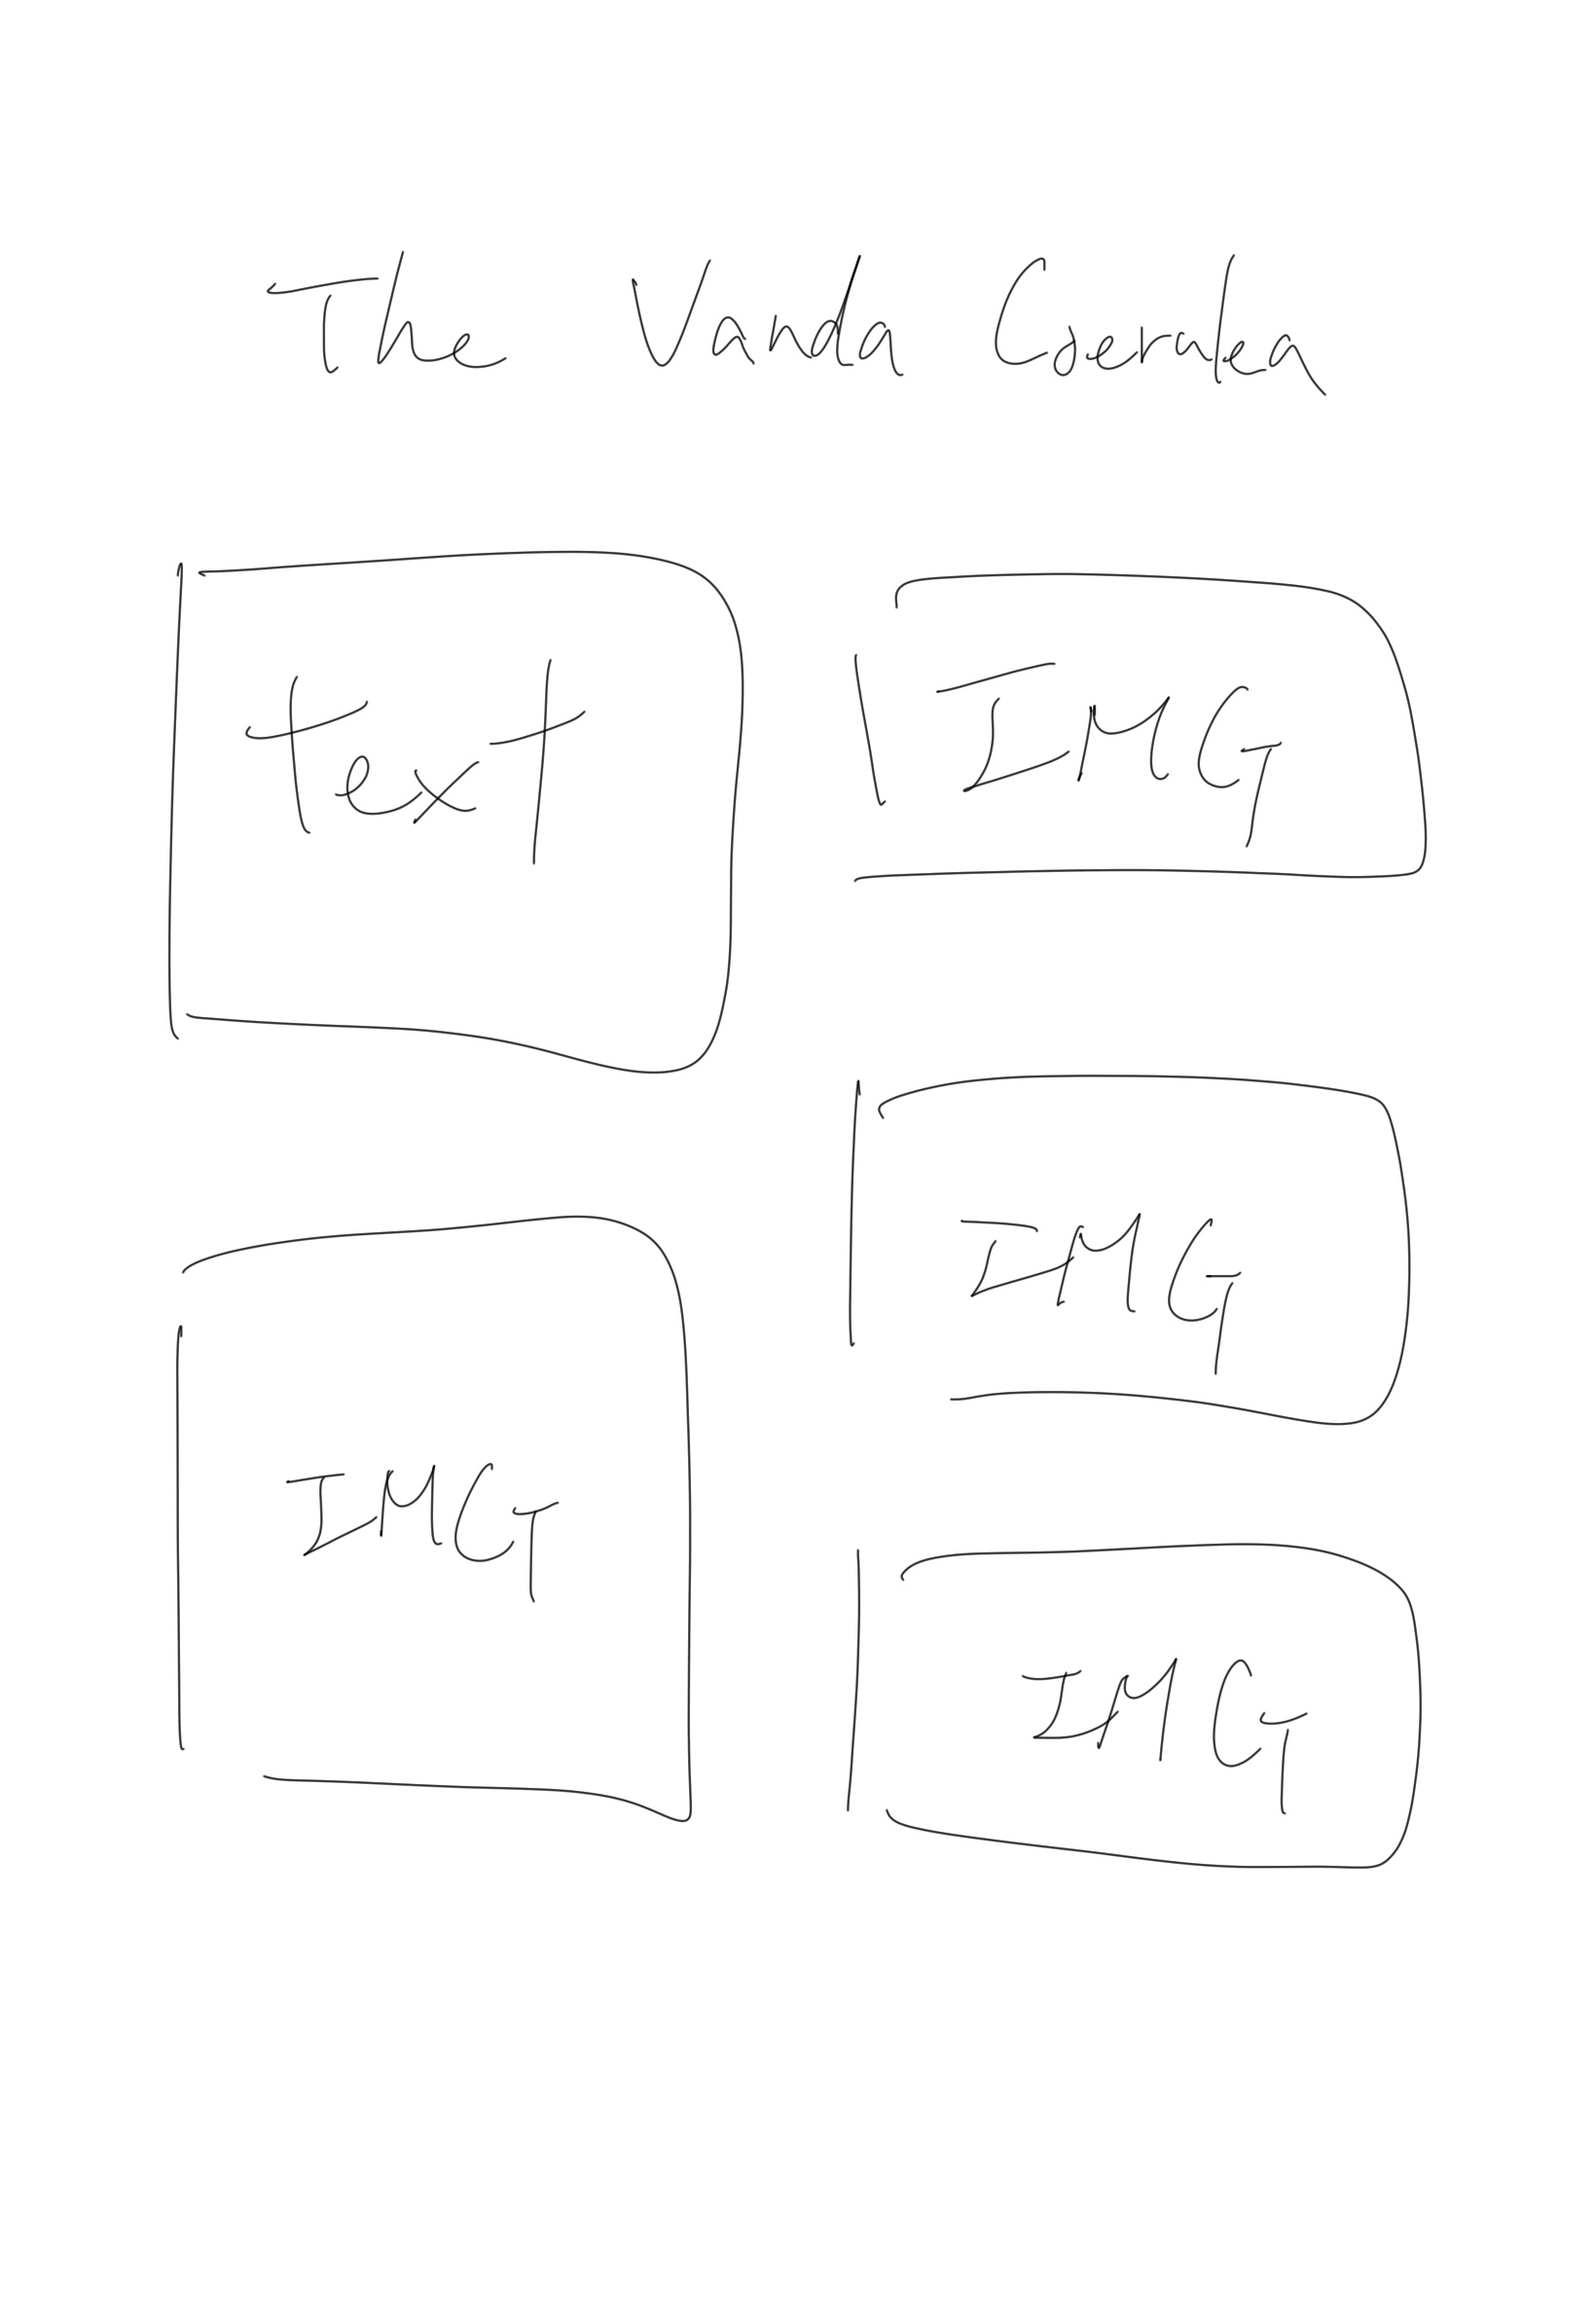 The Vanda Coerulea
text
IMG
IMG
IMG
IMG